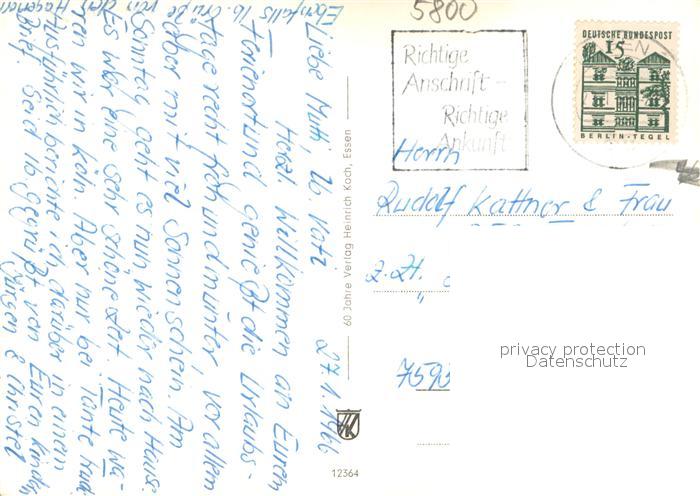 5800
Richtige
Anschrift -
Richtige
Ankunft
DEUTSCHE BUNDESPOST
15
BERLIN-TEGEL
Herrn
Rudolf Kattner & Frau
z. Zt.
privacy protection
Datenschutz
60 Jahre Verlag Heinrich Koch, Essen
12364
27.1.1966
Liebe Mutti, lb. Vati
Herzl. Willkommen an Eurem
Ferienort und genießt die Urlaubs-
tage recht froh und munter, vor allem
aber mit viel Sonnenschein. Am
Sonntag geht es nun wieder nach Hause
Es war eine sehr schöne Zeit. Heute wa-
ren wir in Köln. Aber nur bei Tante Trudi
Ausführlich berichte ich darüber in einem
Brief. Seid lb. gegrüßt von Euren Kindern
Jürgen & Christel
Ebenfalls lb. Grüße
von